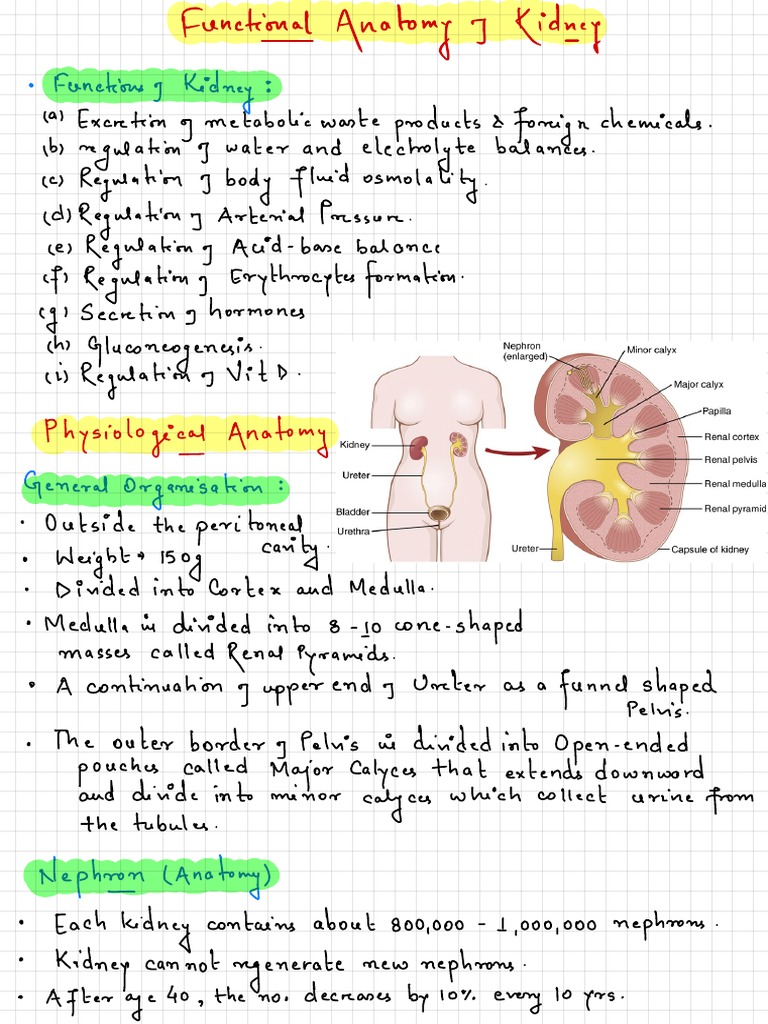 Functional Anatomy of Kidney
• Functions of Kidney :
(a) Excretion of metabolic waste products & foreign chemicals.
(b) regulation of water and electrolyte balances.
(c) Regulation of body fluid osmolality.
(d) Regulation of Arterial Pressure.
(e) Regulation of Acid-base balance
(f) Regulation of Erythrocytes formation.
(g) Secretion of hormones
(h) Gluconeogenesis.
(i) Regulation of Vit D.
Nephron
(enlarged)
Minor calyx
Major calyx
Papilla
Renal cortex
Renal pelvis
Renal medulla
Renal pyramid
Capsule of kidney
Ureter
Kidney
Ureter
Bladder
Urethra
Physiological Anatomy
General Organisation :
• Outside the peritoneal
cavity.
• Weight → 150g
• Divided into Cortex and Medulla.
• Medulla is divided into 8 - 10 cone-shaped
masses called Renal Pyramids.
• A continuation of upper end of Ureter as a funnel shaped
Pelvis.
• The outer border of Pelvis is divided into Open-ended
pouches called Major Calyces that extends downward
and divide into minor calyces which collect urine from
the tubules.
Nephron (Anatomy)
• Each kidney contains about 800,000 - 1,000,000 nephrons.
• Kidney cannot regenerate new nephrons.
• After age 40, the no. decreases by 10% every 10 yrs.